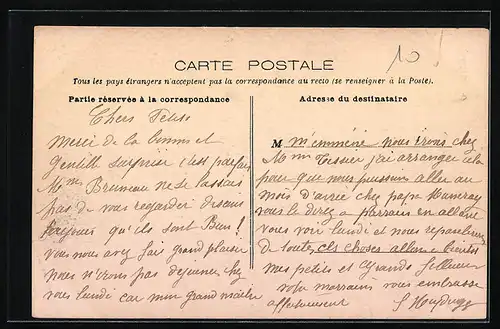 10
CARTE POSTALE
Tous les pays étrangers n'acceptent pas la correspondance au recto (se renseigner à la Poste).
Partie réservée à la correspondance
Chers
Merci de la bonne et
gentille surprise c'est parfait
Mme Bruneau ne se lassait
pas de vous regarder disant
toujours qu'ils sont Bien !
vous nous avez fait grand plaisir
nous n'irons pas dejeuner chez
vous lundi car mon grand
Adresse du destinataire
M m'emmène nous irons chez
Mme Tessier j'ai arrangé cela
pour que nous puissions aller au
mois d'arrée chez papa
vous le direz a parrain en allant
vous voir lundi et nous reparlerons
de toutes ces choses allons a bientôt
mes petites et Grands
votre marraine vous embrasse
affectueusement